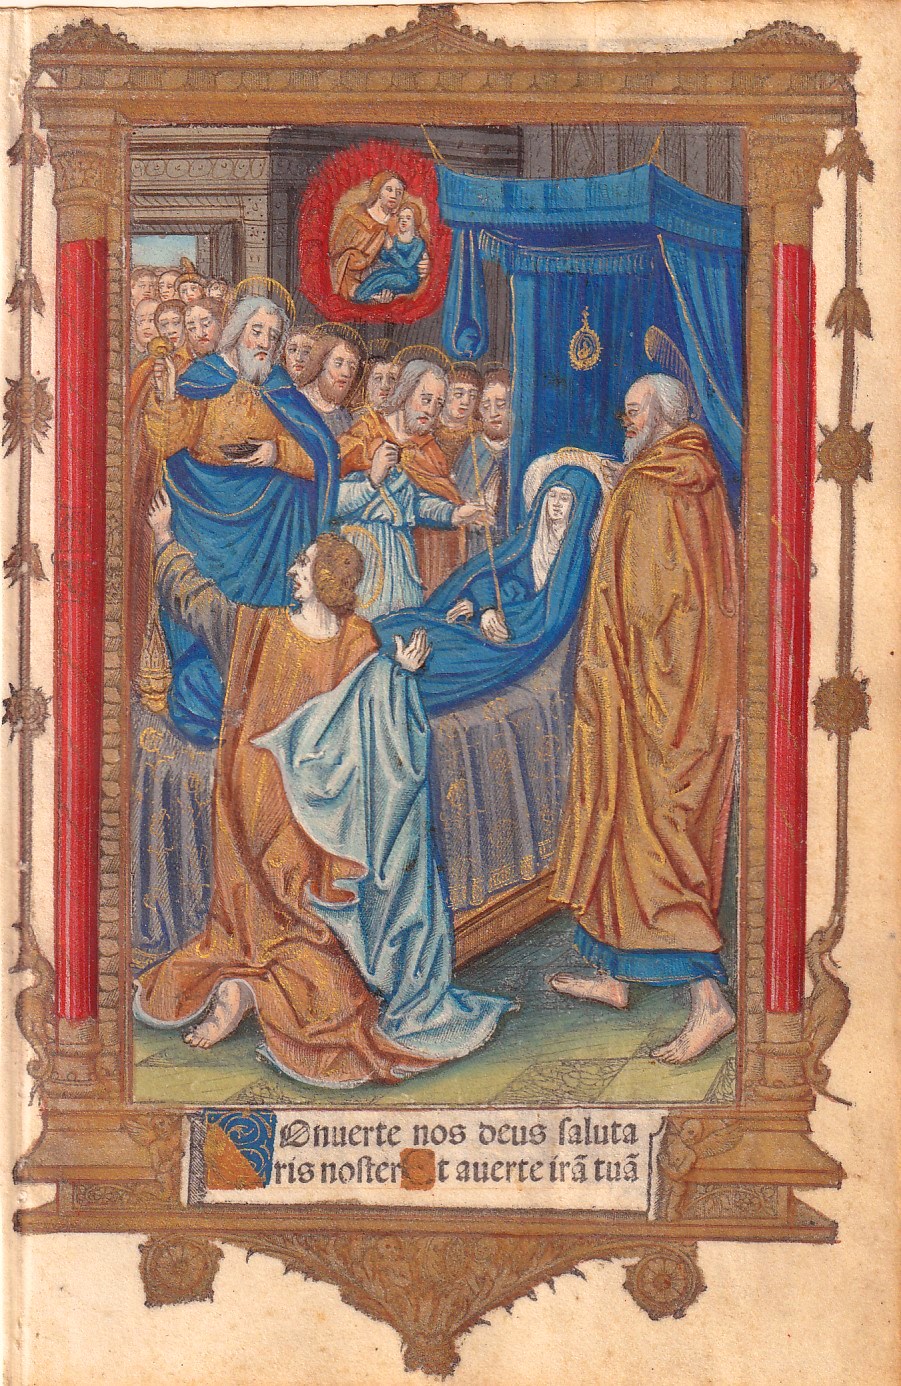 Conuerte nos deus ſaluta
ris noſter Et auerte irã tuã